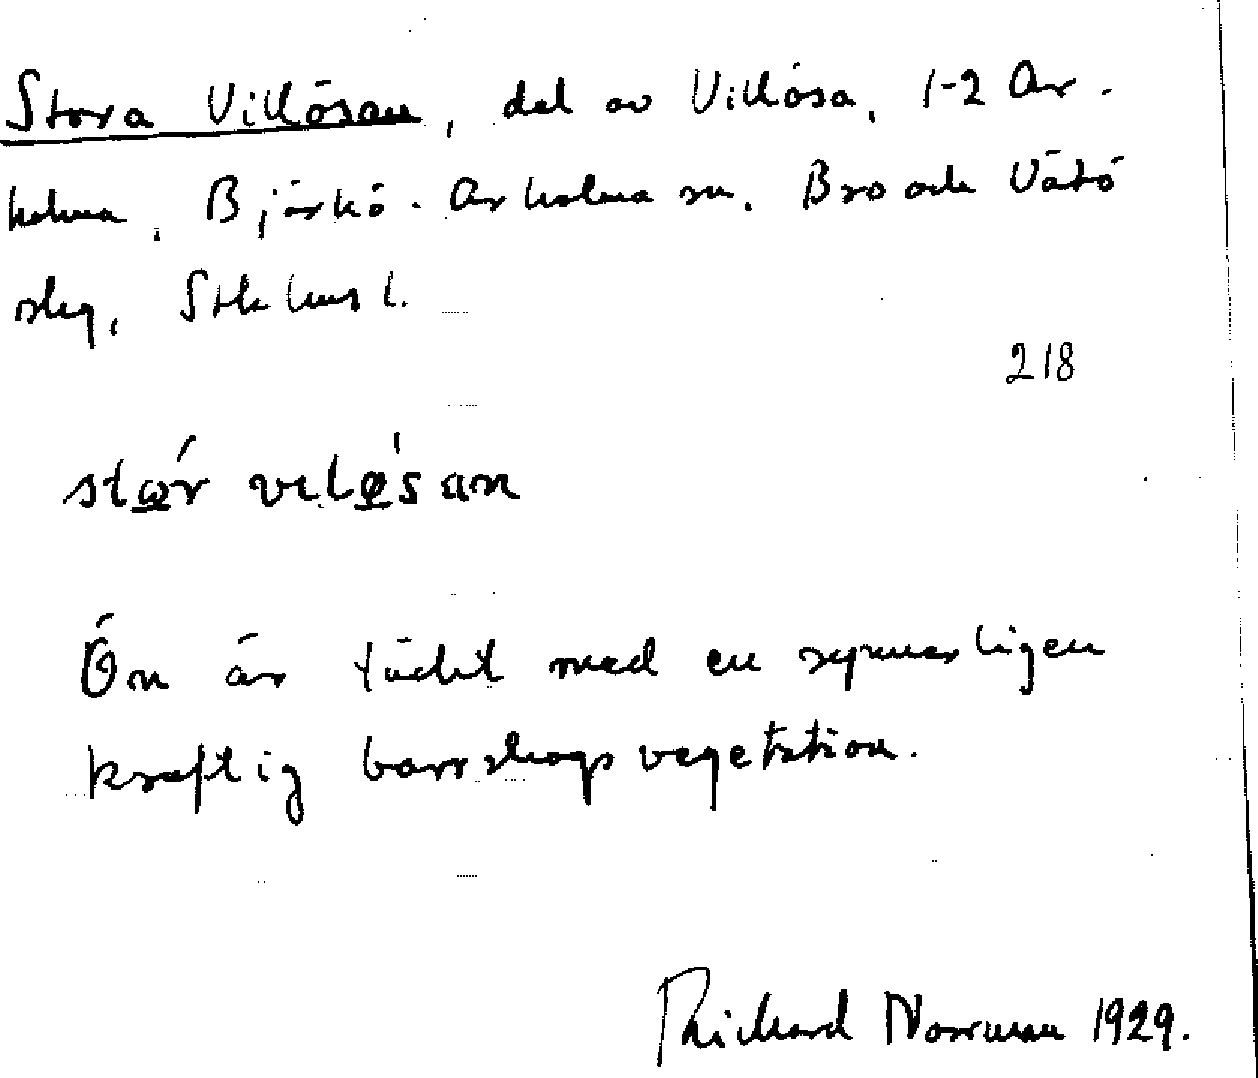 Stora Villösan, del av Villösa, 1-2 Ar-
holma, Björkö-Arholma sn. Bro och Vätö
slg, Sthlms l.
218
stǫ́r vilǿsan
Ön är täckt med en synnerligen
kraftig barrskogsvegetation.
Richard Norrman 1929.